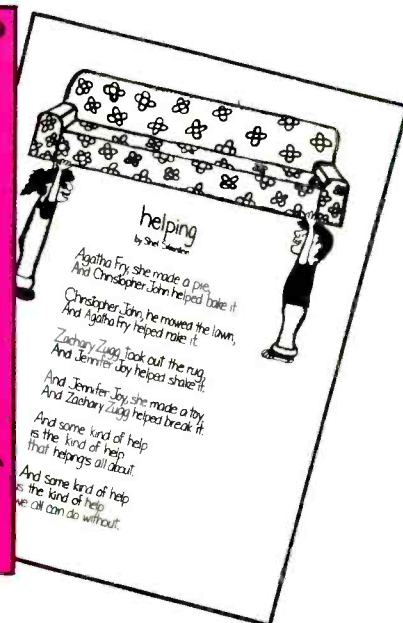 helping
by Shel Silverstein
Agatha Fry, she made a pie,
And Christopher John helped bake it
Christopher John, he mowed the lawn,
And Agatha Fry helped rake it.
Zachary Zugg took out the rug,
And Jennifer Joy helped shake it.
And Jennifer Joy, she made a toy,
And Zachary Zugg helped break it.
And some kind of help
is the kind of help
that helping's all about.
And some kind of help
is the kind of help
we all can do without.